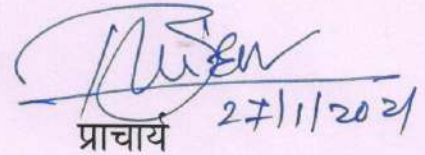 27/1/2021
प्राचार्य